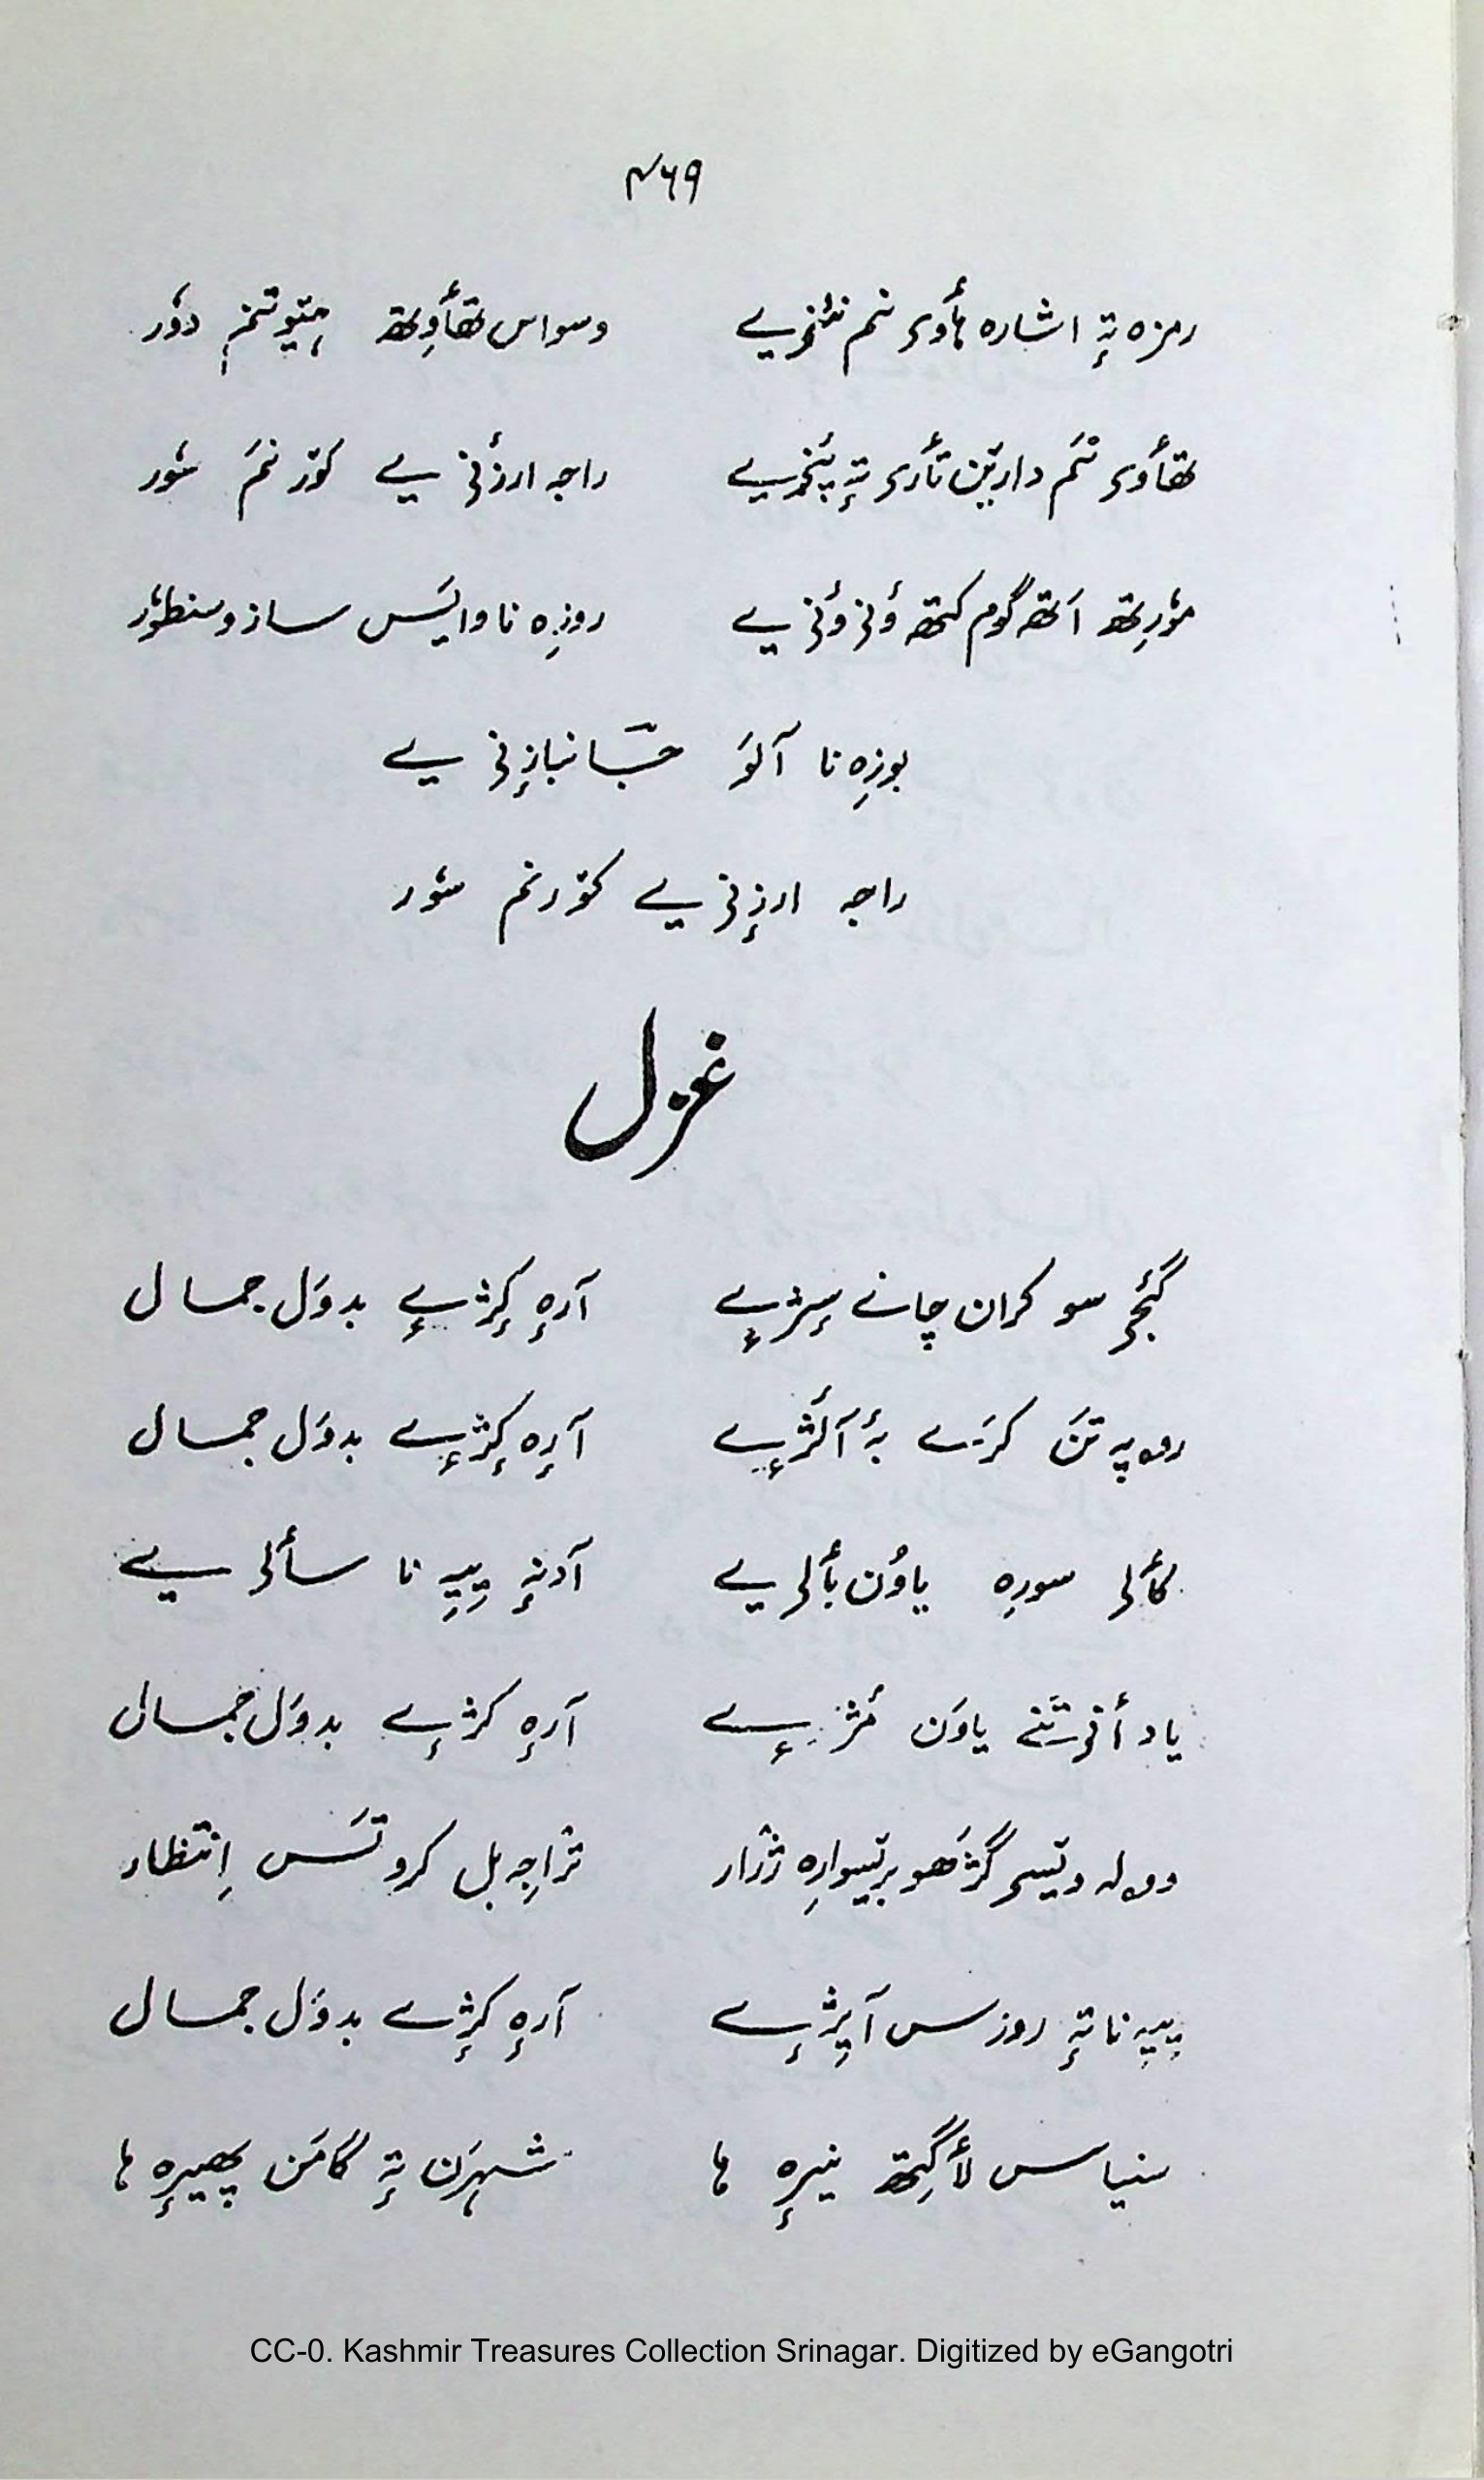 ۴۶۹
رمزہ تہٕ اشارہ ہٲوی نم نٔنۍیے وسواس تھٲوِتھ ہیٚیوتنم دوٗر
تھٲوی نَم دارێن تٲرۍ تہٕ پَنٛجرِیے راجہ ارزٔنۍ یے کوٚر نَم شوٗر
موٗرِتھ اَتھ گوم کتھ ؤنۍ ؤنۍ یے روزِہ نا واپَس ساز و سنطوٗر
بوزِہ نا آلَو حبّا نبازٕنۍ یے
راجہ ارزٕنۍ یے کوٚرنم شوٗر
غزل
گٔجۍ سو کران چانے سٕژیے آرہٕ کٕژیے بدوَل جمال
روپہ تَن کرَے بہٕ آلَژیے آرہٕ کٕژیے بدوَل جمال
کٲلۍ سورِہ یاوُن بٲلۍ یے آدنہٕ یِیہِ نا سٲلۍ یے
یاد أنۍ تَنے یاوَن مٔژیے آرہٕ کژیے بدوَل جمال
وولہ ویسۍ گژھو برتیوارِہ ژرار ترٛاجہ بل کرو تَس اِنتظار
ییہِ نا تہٕ روزس آپژیے آرہٕ کٕژے بدوَل جمال
سنیاس لٲگِتھ نیرہٕ ہا شہرَن تہٕ گامَن پھیرہٕ ہا
CC-0. Kashmir Treasures Collection Srinagar. Digitized by eGangotri